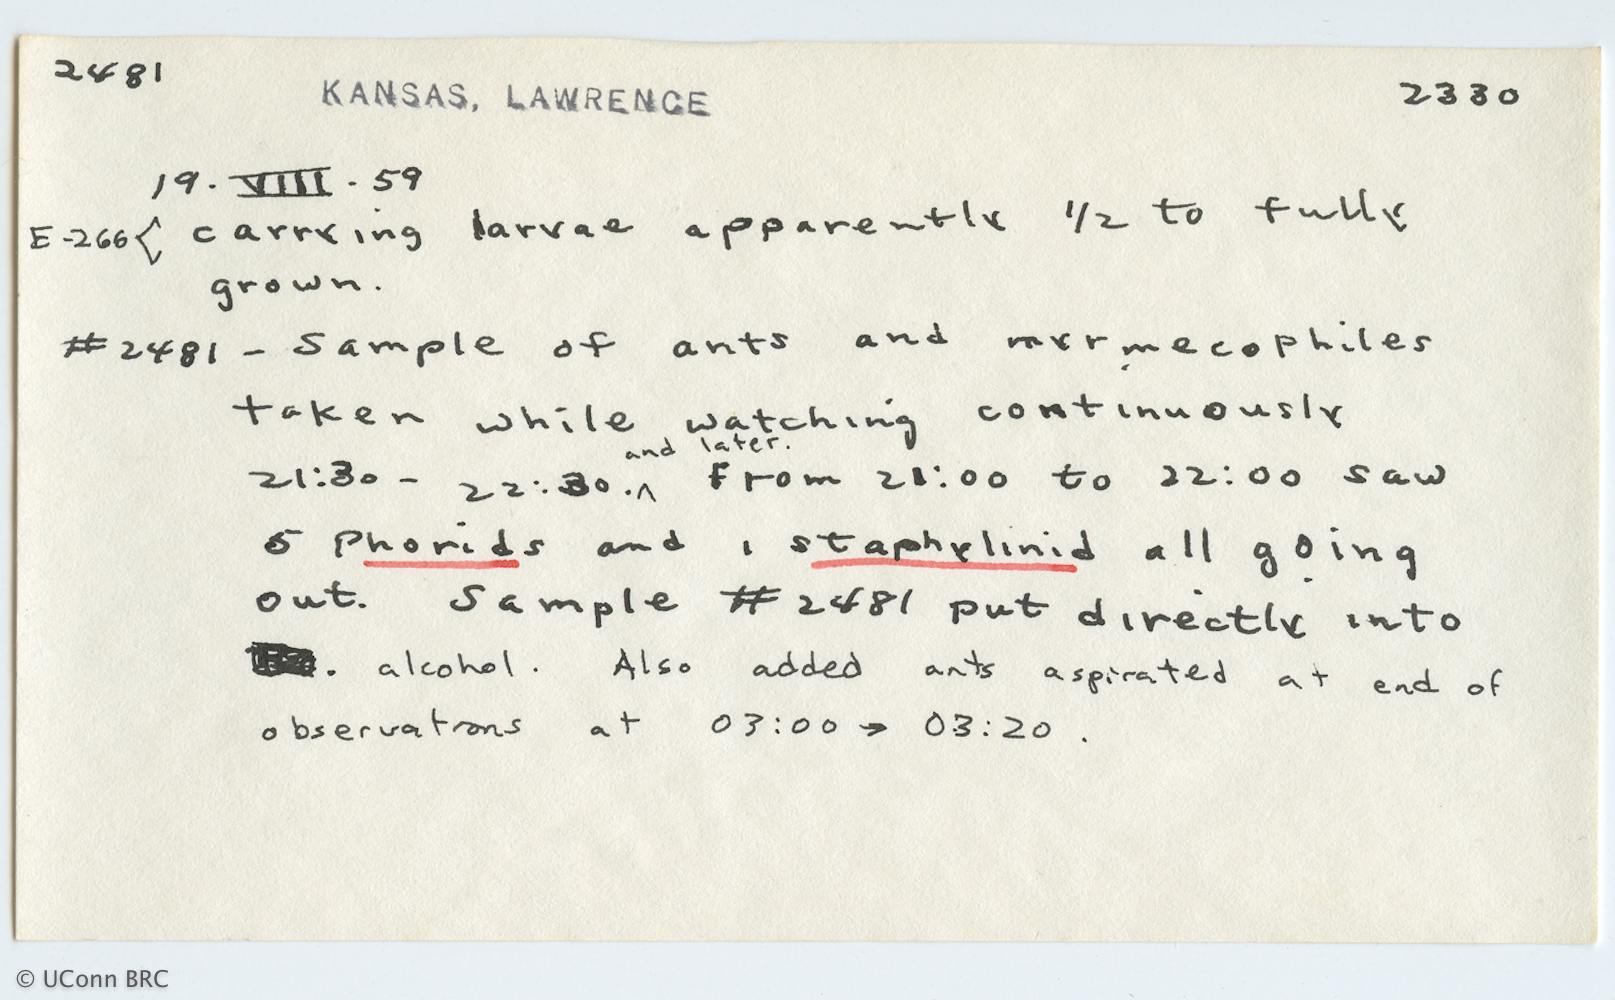 2481
KANSAS, LAWRENCE
2330
19. VIII. 59
E-266 { carrying larvae apparently 1/2 to fully
grown.
#2481 - Sample of ants and myrmecophiles
taken while watching continuously
and later.
21:30 - 22:30.^ From 21:00 to 22:00 saw
5 Phorids and 1 staphylinid all going
out. Sample #2481 put directly into
. alcohol. Also added ants aspirated at end of
observations at 03:00 → 03:20 .
© UConn BRC